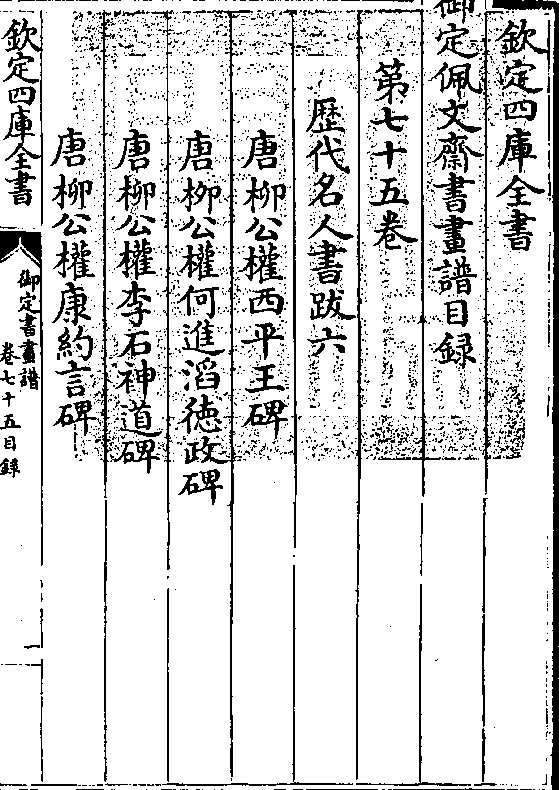 欽定四庫全書
御定佩文齋書畫譜目録
第七十五卷
歴代名人書跋六
唐柳公權西平王碑
唐柳公權何進滔德政碑
唐柳公權李石神道碑
唐柳公權康約言碑
欽定四庫全書
御定書畫譜
卷七十五目録
一